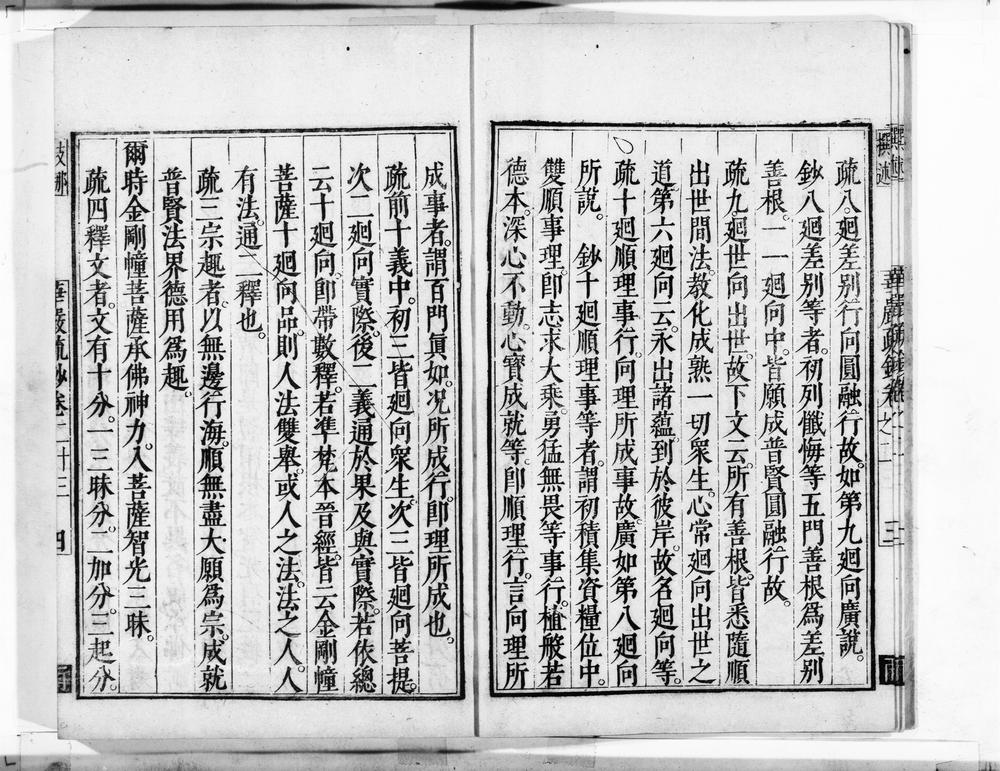 疏八廻差別行向圓融行故。如第九廻向廣說。
鈔八廻差別等者。初列懺悔等五門善根爲差別
善根。一一廻向中。皆願成普賢圓融行故。
疏九廻世向出世。故下文云。所有善根。皆悉隨順
出世間法。教化成熟一切衆生。心常廻向出世之
道。第六廻向云。永出諸蘊。到於彼岸。故名廻向等。
疏十廻順理事行。向理所成事故。廣如第八廻向
所說。　鈔十廻順理事等者。謂初積集資糧位中。
雙順事理。卽志求大乘。勇猛無畏等事行。植般若
德本。深心不動。心寶成就等。卽順理行。言向理所
成事者。謂百門眞如。况所成行。卽理所成也。
疏前十義中。初三皆廻向衆生。次三皆廻向菩提。
次二廻向實際。後二義通於果及與實際。若依總
云十廻向。卽帶數釋。若準梵本晉經。皆云金剛幢
菩薩十廻向品。則人法雙舉。或人之法。法之人。人
有法。通二釋也。
疏三宗趣者。以無邊行海。順無盡大願爲宗。成就
普賢法界德用爲趣。
爾時金剛幢菩薩承佛神力。入菩薩智光三昧。
疏四釋文者。文有十分。一三昧分。二加分。三起分。
華嚴疏鈔卷二十三　四